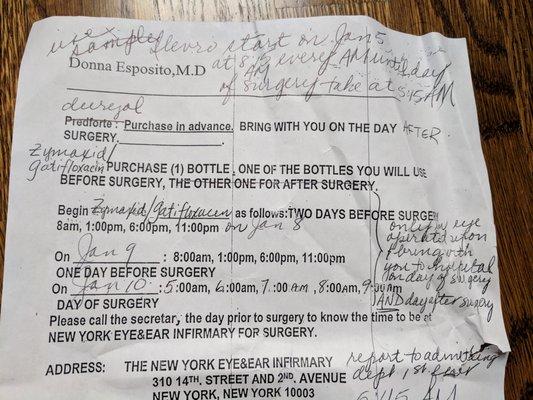 use sample Ilevro start on Jan 5
at 8:15 every AM until day
of surgery take at 5:15 AM
Donna Esposito,M.D
durezol
Predforte: Purchase in advance. BRING WITH YOU ON THE DAY AFTER.
SURGERY.
Zymaxid/
Gatifloxacin PURCHASE (1) BOTTLE, ONE OF THE BOTTLES YOU WILL USE
BEFORE SURGERY, THE OTHER ONE FOR AFTER SURGERY.
Begin Zymaxid/Gatifloxacin as follows:TWO DAYS BEFORE SURGERY
8am, 1:00pm, 6:00pm, 11:00pm on Jan 8
only in eye
operated upon
bring with
you to hospital
on day of surgery
AND day after surgery
On Jan 9 : 8:00am, 1:00pm, 6:00pm, 11:00pm
ONE DAY BEFORE SURGERY
On Jan 10 : 5:00am, 6:00am, 7:00 AM, 8:00AM, 9:00AM
DAY OF SURGERY
Please call the secretar, the day prior to surgery to know the time to be at
NEW YORK EYE&EAR INFIRMARY FOR SURGERY.
ADDRESS: THE NEW YORK EYE&EAR INFIRMARY
310 14TH, STREET AND 2ND. AVENUE
NEW YORK, NEW YORK 10003
report to admitting
dept 1st floor
6:15 AM